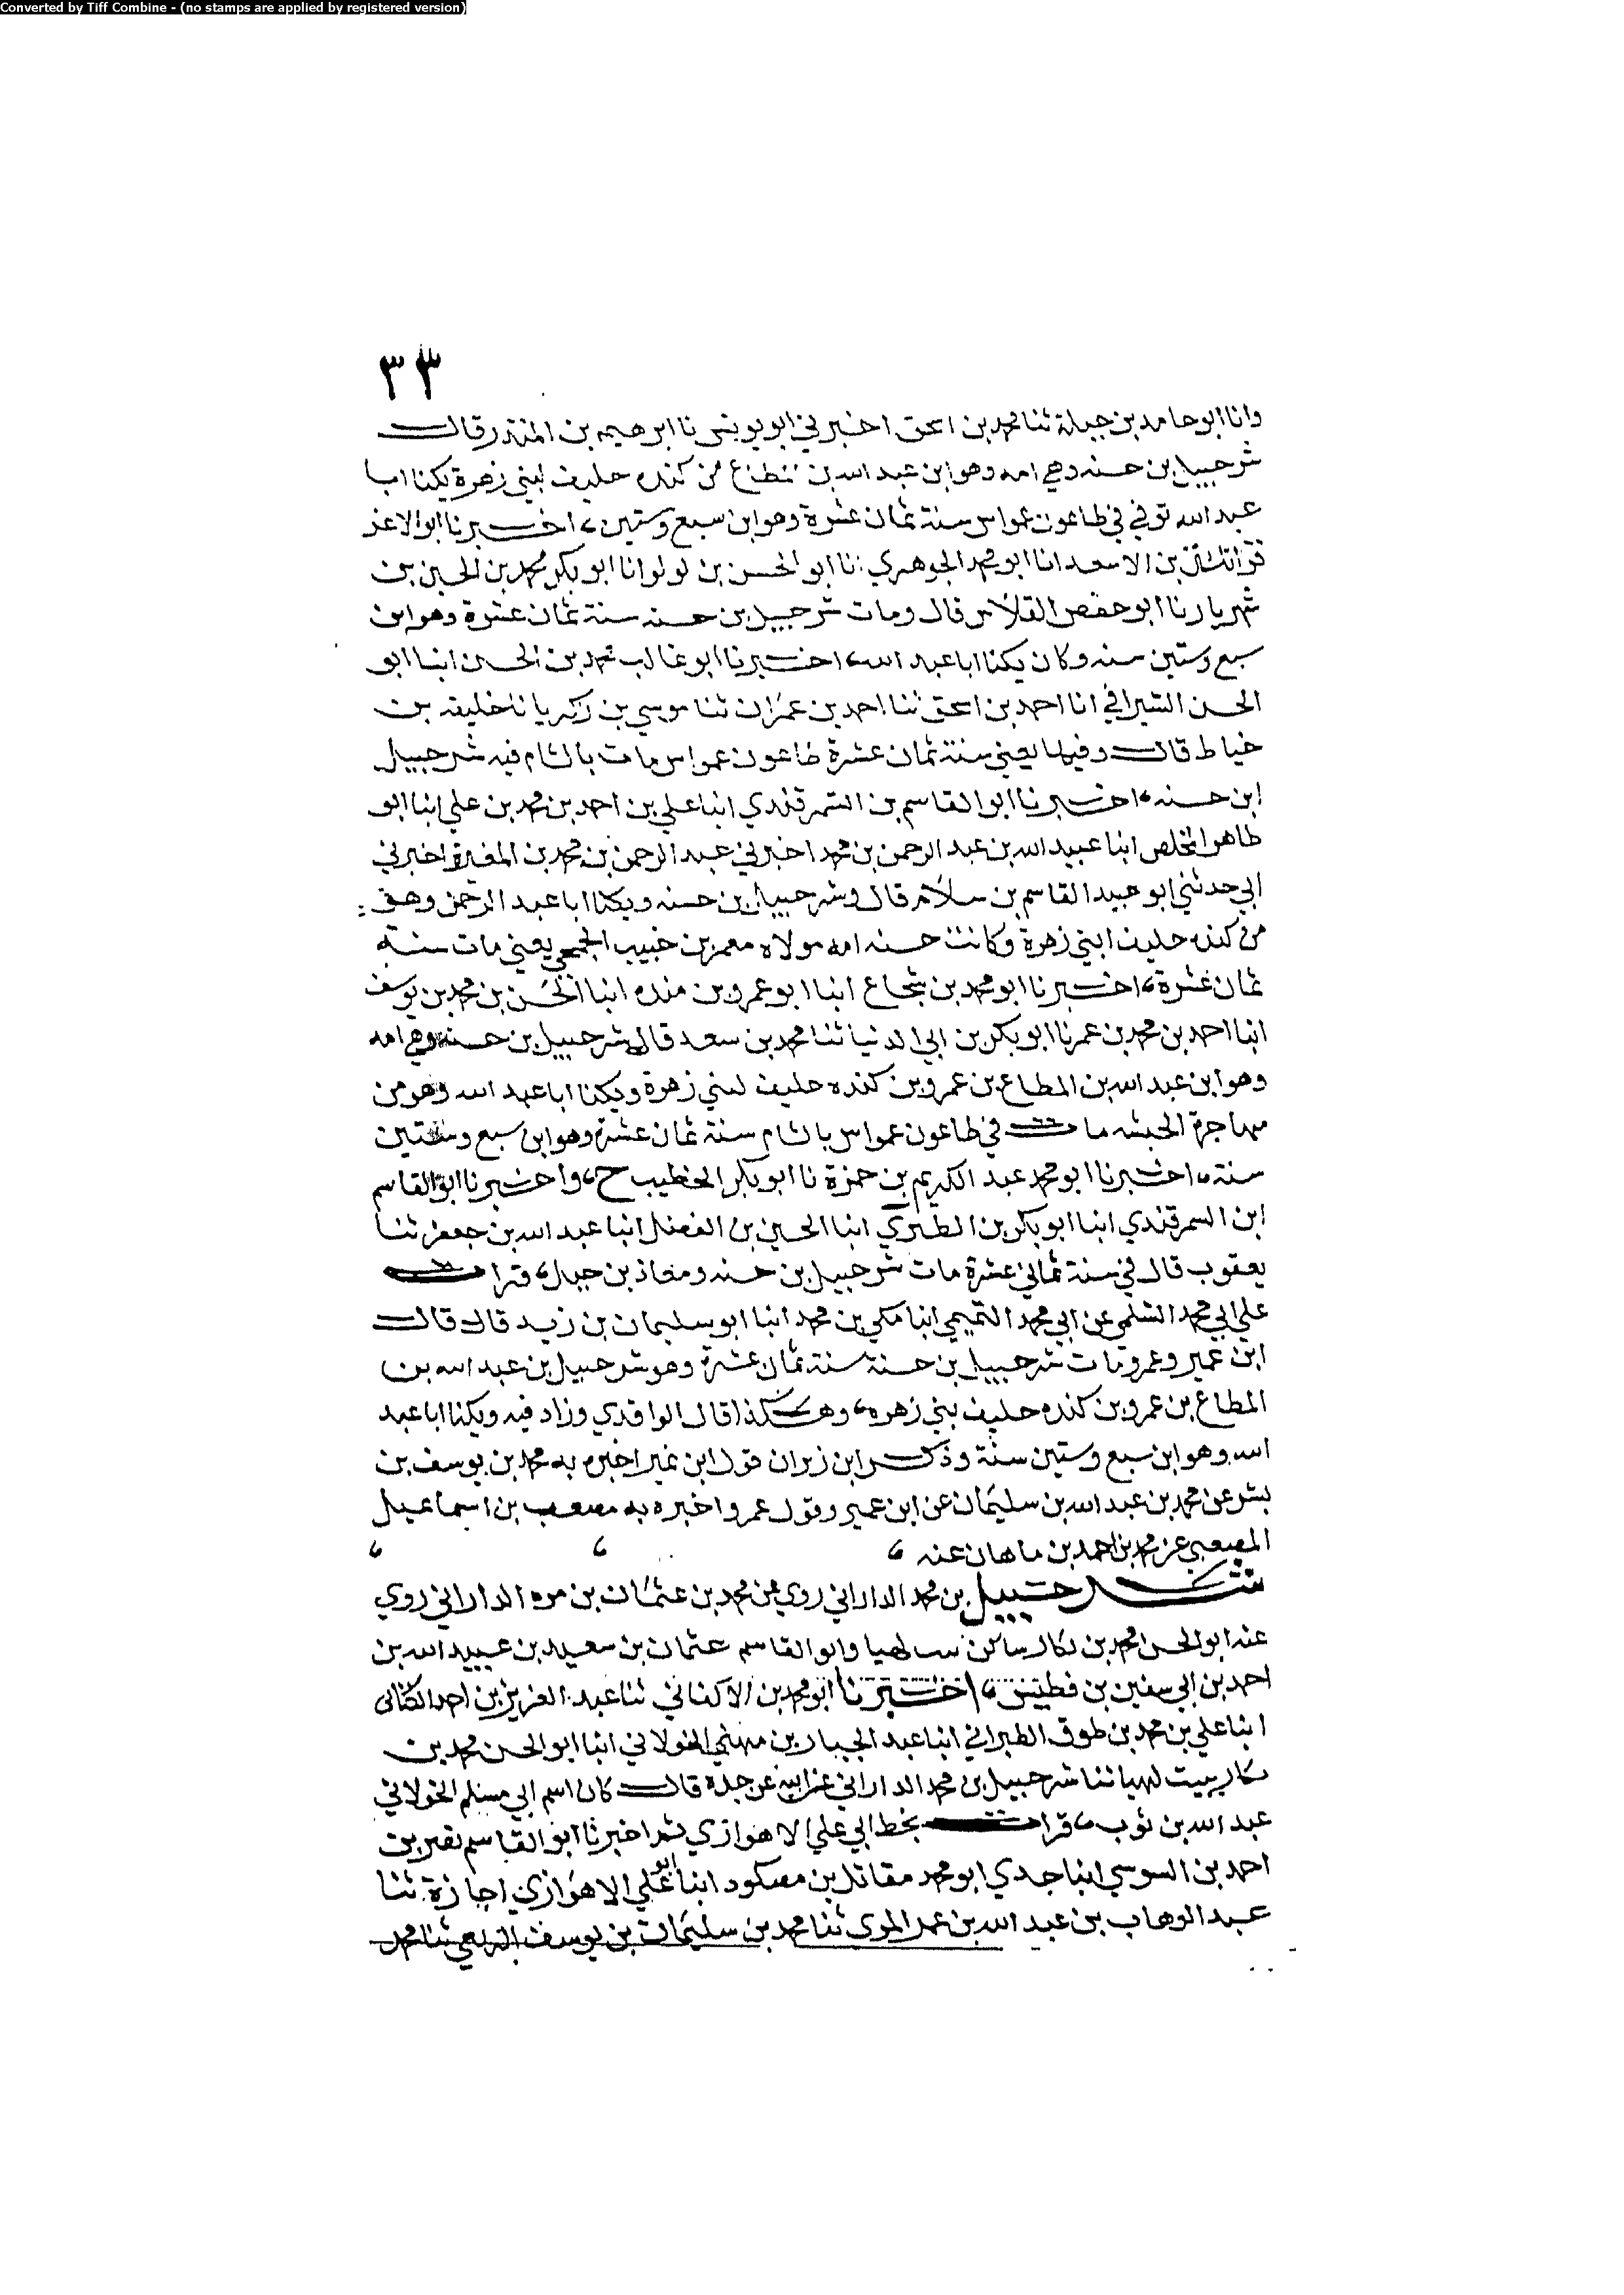 Converted by Tiff Combine - (no stamps are applied by registered version)
٣٣
وانا ابو حامد بن جبلة ثنا محمد بن اسحق اخبرني ابو يونس نا ابرهيم بن المنذر قال
شرحبيل بن حسنه وهي امه وهو ابن عبد الله بن المطاع من كنده حليف لبني زهرة يكنا ابا
عبد الله توفي في طاعون عمواس سنة ثمان عشرة وهو ابن سبع وستين، اخبرنا ابو الاعز
قراتكين بن الاسعد انا ابو محمد الجوهري انا ابو الحسن بن لولو انا ابو بكر محمد بن الحسين بن
شهريار نا ابو حفص الفلاس قال ومات شرحبيل بن حسنه سنة ثمان عشرة وهو ابن
سبع وستين سنه وكان يكنا ابا عبد الله، اخبرنا ابو غالب محمد بن الحسن انبا ابو
الحسن السيرافي انا احمد بن اسحق ثنا احمد بن عمران ثنا موسي بن زكريا نا خليفه بن
خياط قال وفيها يعني سنة ثمان عشرة طاعون عمواس مات بالشام فيه شرحبيل
ابن حسنه، اخبرنا ابو القاسم بن السمرقندي انبا علي بن احمد بن محمد بن علي انبا ابو
طاهر المخلص انبا عبيد الله بن عبد الرحمن بن محمد اخبرني عبد الرحمن بن محمد بن المغيرة اخبرني
ابي حدثني ابو عبيد القاسم بن سلام قال وشرحبيل بن حسنه ويكنا ابا عبد الرحمن وهو
من كنده حليف لبني زهرة وكانت حسنه امه مولاه معمر بن حبيب الجمحي يعني مات سنة
ثمان عشرة، اخبرنا ابو محمد بن شجاع انبا ابو عمرو بن منده انبا الحسن بن محمد بن يوسف
انبا احمد بن محمد بن عمر نا ابو بكر بن ابي الدنيا ثنا محمد بن سعد قال شرحبيل بن حسنه وهي امه
وهو ابن عبد الله بن المطاع بن عمرو بن كنده حليف لبني زهرة ويكنا ابا عبد الله وهو من
مهاجرة الحبشه مات في طاعون عمواس بالشام سنة ثمان عشرة وهو ابن سبع وستين
سنة، اخبرنا ابو محمد عبد الكريم بن حمزة نا ابو بكر الخطيب ح، واخبرنا ابو القاسم
ابن السمرقندي انبا ابو بكر بن الطبري انبا الحسين بن الفضل انبا عبد الله بن جعفر ثنا
يعقوب قال في سنة ثماني عشرة مات شرحبيل بن حسنه ومعاذ بن جبل، قرات
علي ابي محمد السلمي عن ابي محمد التميمي انبا مكي بن محمد انبا ابو سليمان بن زيد قال قال
ابن نمير وعمرو مات شرحبيل بن حسنة سنة ثمان عشرة وهو شرحبيل بن عبد الله بن
المطاع بن عمرو بن كنده حليف بني زهره، وهكذا قال الواقدي وزاد فيه ويكنا ابا عبد
الله وهو ابن سبع وستين سنة وذكر ابن زبران قول ابن نمير اخبره به محمد بن يوسف بن
بشر عن محمد بن عبد الله بن سليمان عن ابن نمير وقول عمرو اخبره به مصعب بن اسماعيل
المصعبي عن محمد بن احمد بن ماهان عنه ، ، ،
شرحبيل بن محمد الداراني روي عن محمد بن عثمان بن مره الداراني روي
عنه ابو الحسن محمد بن بكار ساكن بيت لهيا وابو القاسم عثمان بن سعيد بن عبيد الله بن
احمد بن ابي سفين بن فطيس، اخبرنا ابو محمد بن الاكفاني ثنا عبد العزيز بن احمد الكتاني
انبا علي بن محمد بن طوق الطبراني انبا عبد الجبار بن مهني الخولاني انبا ابو الحسن محمد بن
بكار ببيت لهيا ثنا شرحبيل بن محمد الداراني عن ابيه عن جده قال كان اسم ابي مسلم الخولاني
عبد الله بن ثوب، قرات بخط ابي علي الاهوازي ثم اخبرنا ابو القاسم نصر بن
احمد بن السوسي انبا جدي ابو محمد مقاتل بن مصكود انبا ابو علي الاهوازي اجازة ثنا
عبد الوهاب بن عبد الله بن عمر المري ثنا محمد بن سليمان بن يوسف الربعي ثنا محمد